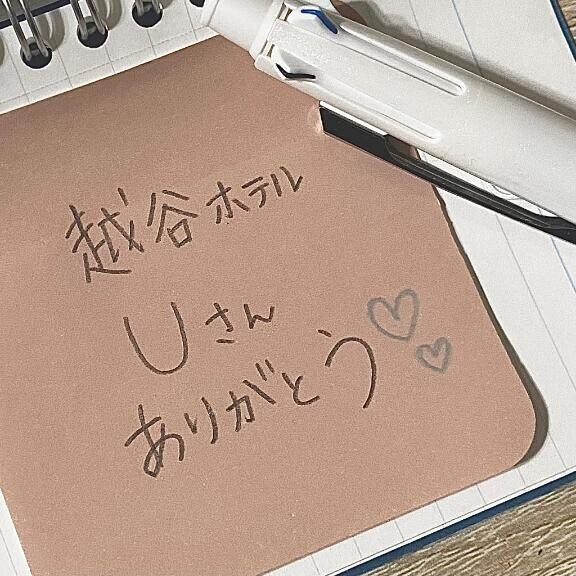 越谷ホテル
Uさん
ありがとう♡♡